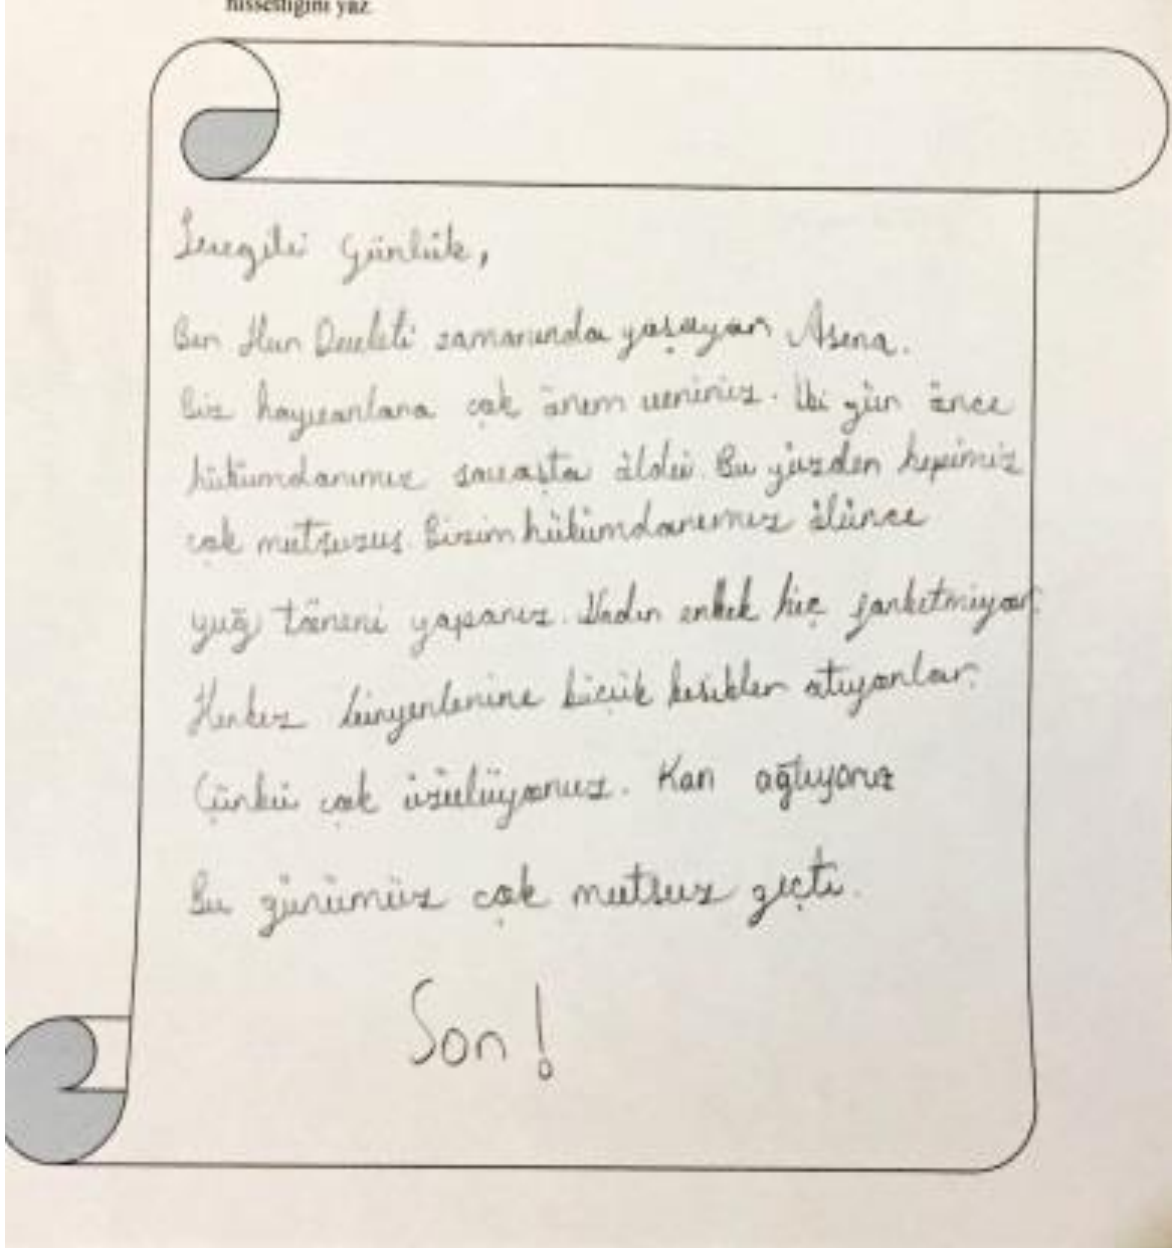 hissettiğini yaz.
Sevgili Günlük,
Ben Hun Devleti zamanında yaşayan Asena.
Biz hayvanlara çok önem veririz. İki gün önce
hükümdarımız savaşta öldü. Bu yüzden hepimiz
çok mutsuzuz. Bizim hükümdarımız ölünce
yuğ töreni yaparız. Kadın erkek hiç farketmiyor.
Herkez bünyelerine küçük kesikler atıyorlar.
Çünkü çok üzülüyoruz. Kan ağlıyoruz
Bu günümüz çok mutsuz geçti.
Son!